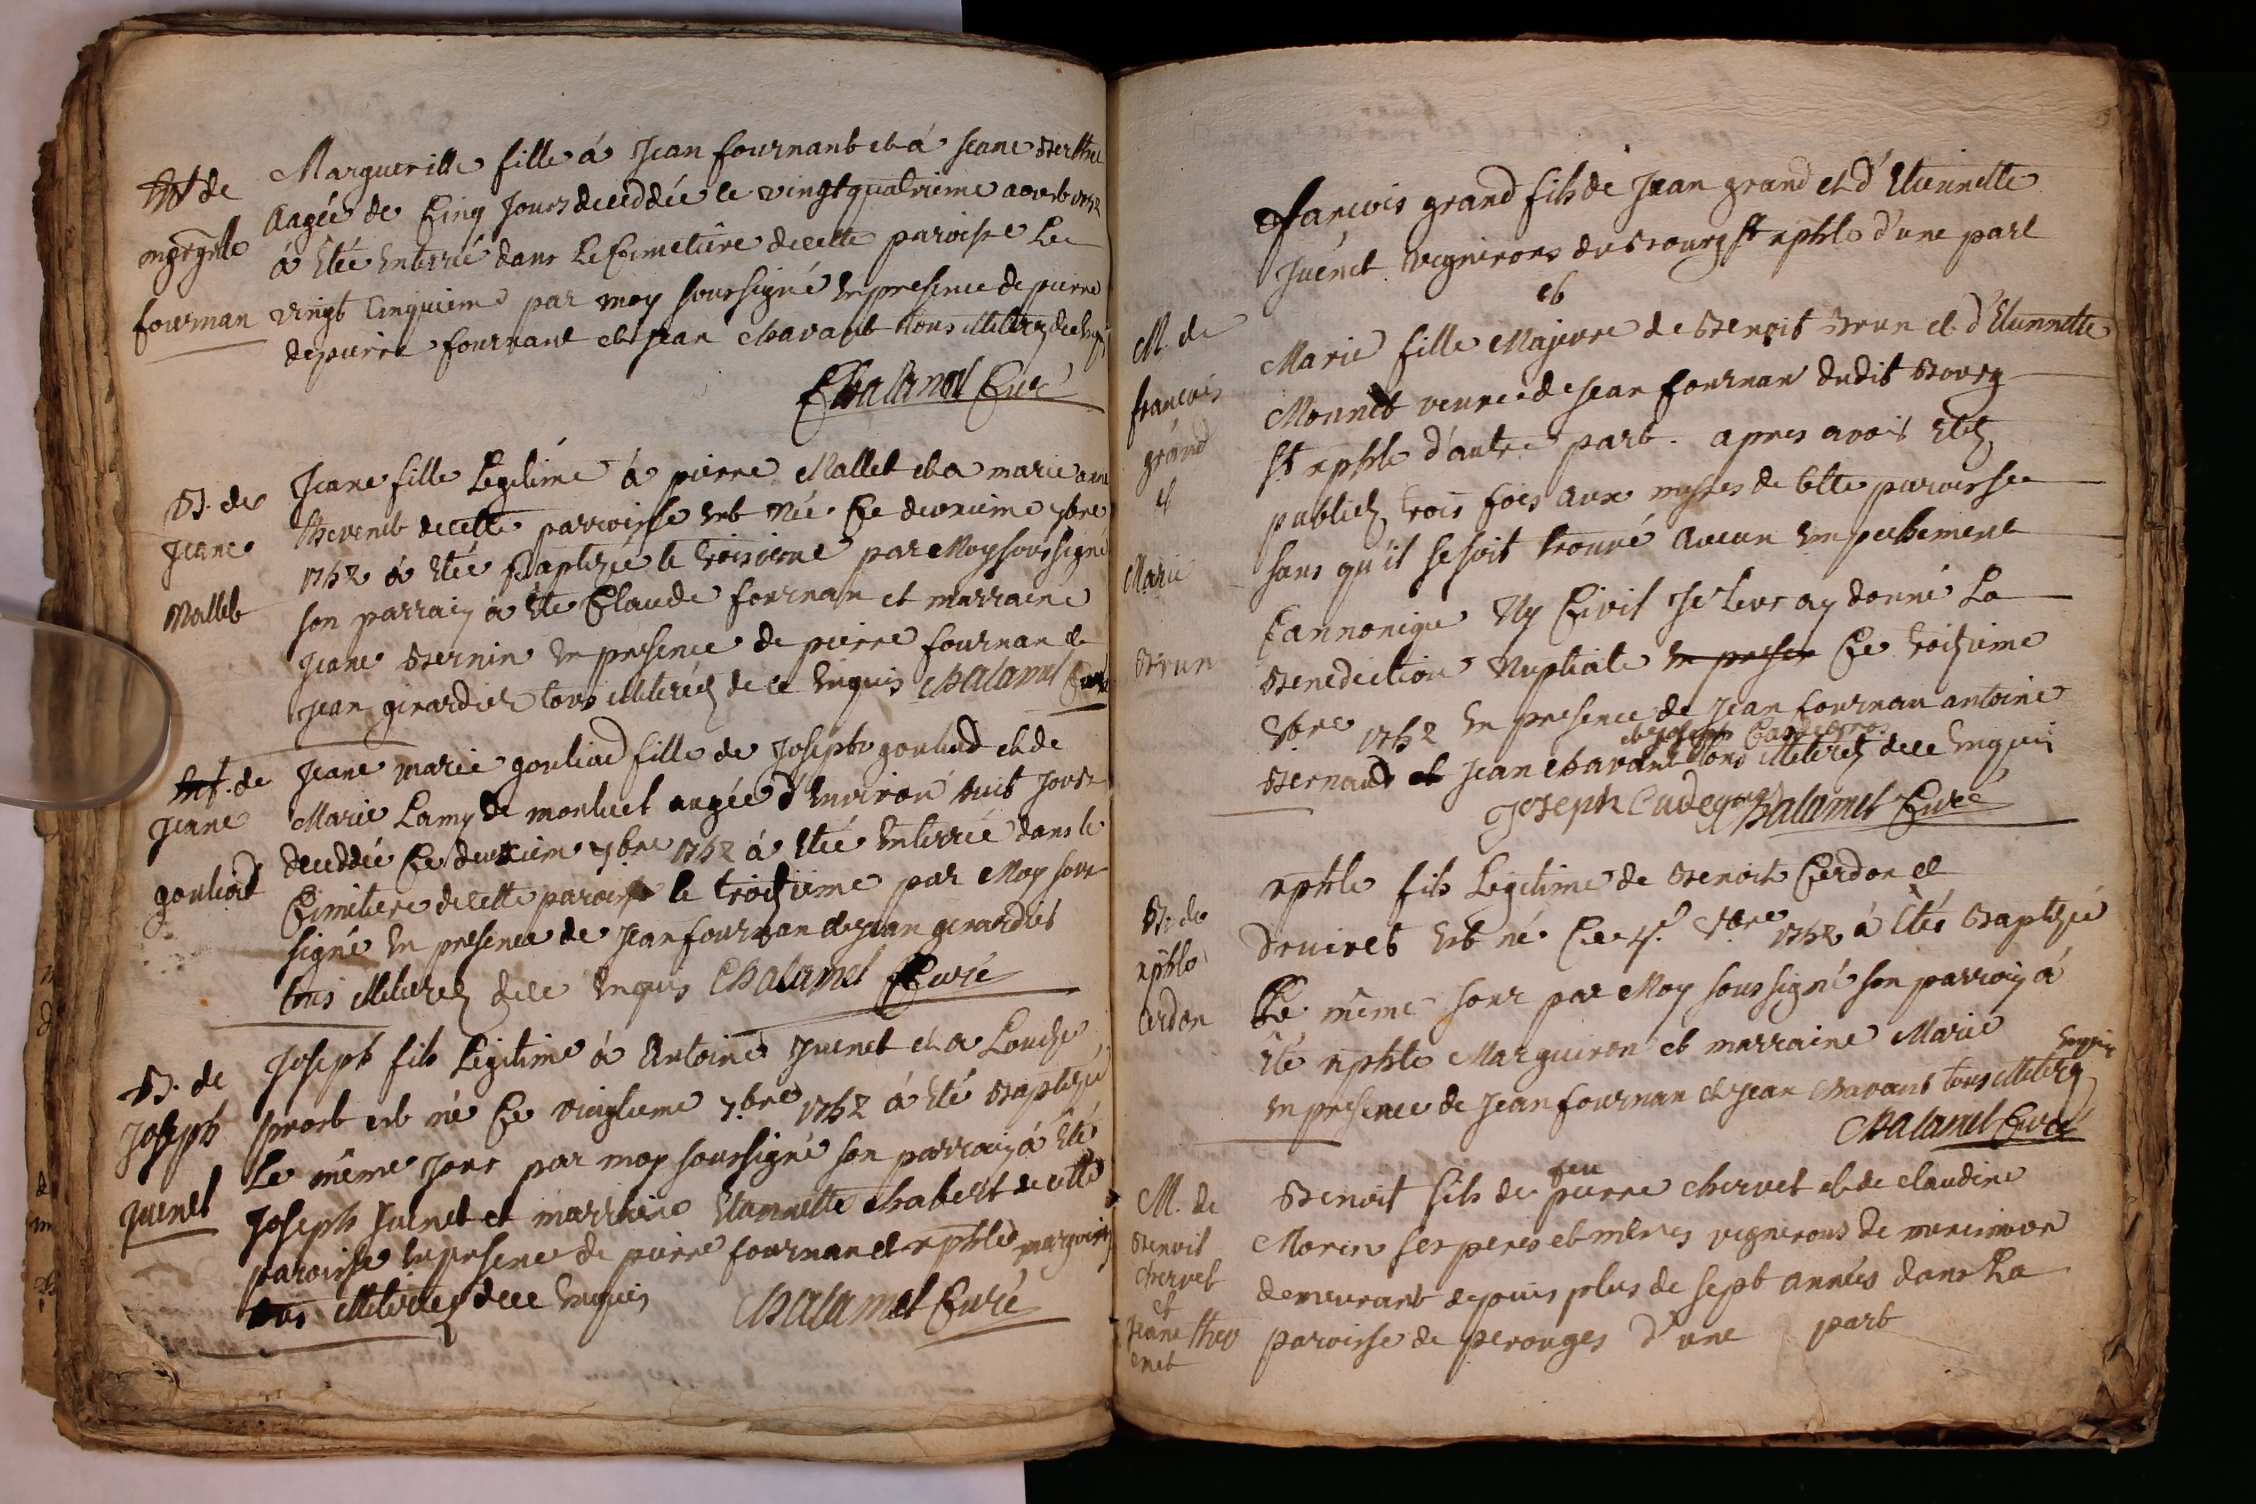 Mt de
margte
fournan
Margueritte fille á Jean fournant et á Jeane Berthet
Aagée de Cinq Jours deceddée le vingtquatrieme aoust 1752
á étée enterrée dans Le Cimetiere decette paroisse Le
vingt Cinquieme par moy soussigné en presence de pierre
depierre fournant et Jean chavant tous illiterez dece enquis
Chalamel Curé
B. de
Jeane
Mallet
Jeane fille Legitime á pierre Mallet et a marie anne
thevenet decette parroisse est née Ce deuxieme 7bre
1752 á étée Baptizée le troisieme par Moy soussigné
son parrain á été Claude fournan et marraine
Jeane Bernin en presence de pierre fournan et
Jean girardier tous illiterez de ce enquis Chalamel Curé
Mt. de
Jeane
gouliard
Jeane marie gouliard fille de Joseph gouliard et de
Marie Lamy de montuel aagée d'environ huit Jours
deceddée Ce deuxieme 7bre 1752 á étée enterrée dans le
Cimetiere decette paroisse le troizieme par Moy sous
signé en presence de Jean fournan et Jean girardier
tous illiterez dece enquis Chalamel Curé
B. de
Joseph
Juenet
Joseph fils Légitime á Antoine Juenet et a Louise
prost est né Ce vingtieme 7.bre 1752 á été Baptizé
Le même Jour par moy soussigné son parrain á été
Joseph Juenet et marraine etiennette chabert de cette
paroisse en presence de pierre fournan et rphle marguiron
tous illiterez dece enquis Chalamel Curé
M. de
francois
grand
et
Marie
Brun
françois grand fils de Jean grand et d'Etiennette
Juénet vignerons du Bourg St rphle d'une part
et
Marie fille Majeure de Benoit Brun et d'Etiennette
Monnet veuve de Jean fournan dudit Bourg
St rphle d'autre part. apres avois étéz
publiez trois fois aux messes de cette paroisse
sans qu'il se soit trouvé aucun empechement
Cannonique Ny Civil Je leur ay donné La
Benediction Nuptiale en presen Ce troizieme
8bre 1752 en presence de Jean fournan antoine
et joseph Cudegros
Bernaud et Jean chavant tous illiterez dece enquis
Joseph Cudegros Chalamel Curé
B. de
rphle
Cerdon
rphle fils Legitime de Benoit Cerdon et
druiret est né Ce 4e 8bre 1752 á étés Baptizé
Le même jour par Moy soussigné son parrain á
été rphle Marguiron et marraine Marie
en presence de Jean fournan et Jean chavant tous illiterez enquis
Chalamel Curé
M. de
Benoit
chervet
et
Jeane thev
enet
Benoit fils de feu pierre chervet et de claudine
Morin ses peres et mères vignerons de meximieux
demeurant depuis plus de sept années dans La
paroisse de perouges d'une part